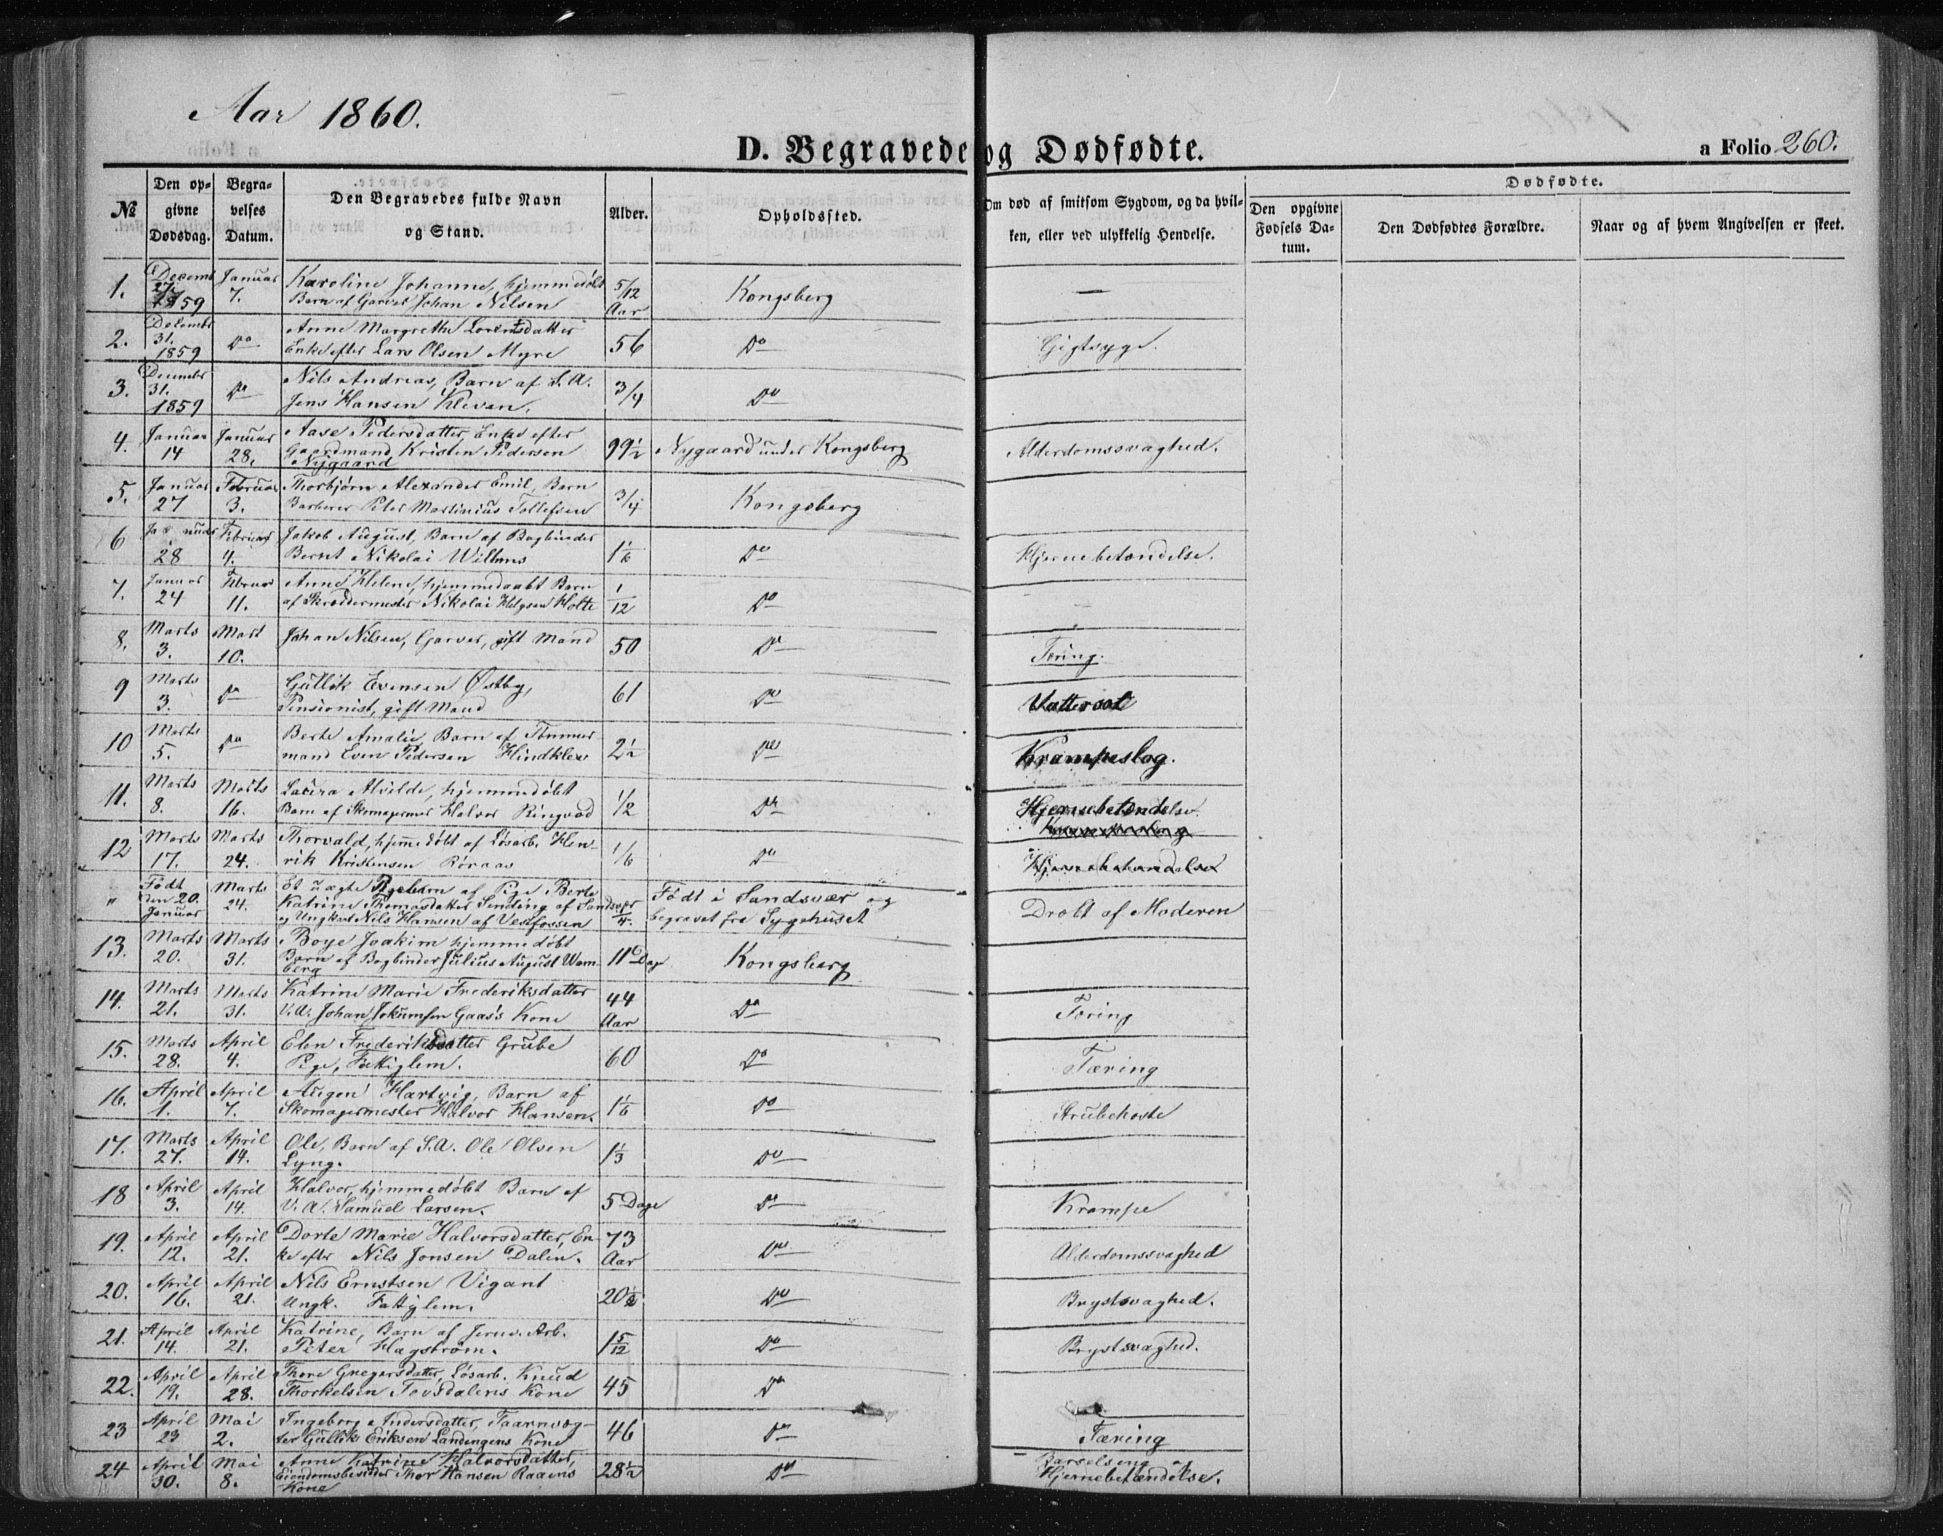 Aar 1860.
D. Begravede og Dødfødte.
a Folio 260.
№
Den opgivne Dødsdag.
Begravelses Datum.
Den Begravedes fulde Navn og Stand.
Alder.
Opholdssted.
Om død af smitsom Sygdom, og da hvilken, eller ved ulykkelig Hendelse.
Dødfødte.
Den opgivne Fødsels Datum.
Den Dødfødtes Forældre.
Naar og af hvem Angivelsen er skeet.
1. Decemb 27 1859 Januar 7. Karoline Johanne, hjemmedøbt Barn af Garver Johan Nilsen 5/12 Aar Kongsberg —
2. Decembr 31. 1859 Do Anne Margrethe Lorentsdatter Enke efter Lars Olsen Myre 56 Do Gigtsyge.
3. December 31. 1859 Do Nils Andreas, Barn af S. A. Jens Hansen Klevan. 3/4 Do
4. Januar 14 Januar 28. Aase Pedersdatter, Enke efter Gaardmand Kristen Pedersen Nygaard 99 1/2 Nygaard under Kongsberg Alderdomssvaghed.
5. Januar 27 Februar 3. Thorbjørn Alexander Emil, Barn Barberer Peter Martinius Tollefsen 3/4 Kongsberg
6 Januar 28 Februar 4. Jakob August, Barn af Bogbinder Bernt Nikolai Willums 1 1/6 Do Hjernebetændelse.
7. Januar 24 Februar 11. Anne Helene, hjemmedøbt Barn af Skreddermester Nikolai Helgsen Holte 1/12 Do
8. Marts 3. Mart 10. Johan Nilsen, Garver, gift Mand 50 Do Tæring.
9 Marts 3. Do Gullik Evensen Østby, Pensionist, gift Mand 61 Do Vattersot
10 Marts 5. Do Berte Amalie, Barn af Tømmermand Even Pedersen Hindklev 2 1/2 Do Krampeslag.
11. Marts 8. Marts 16. Laura Alvilde, hjemmedøbt Barn af Skomagermes Halvor Ringvod 1/2 Do Hjernebetændelse.
12 Marts 17. Marts 24. Thorvald, hjemedøbt af Løsarb. Henrik Kristensen Røraas 1/6 Do Hjernebetændelse
" Født den 20. Januar Marts 24. Et uægte Pigebarn af Pige Berte Katrine Thomasdatter Sending af Sandsvær og Ungkarl Nils Hansen af Vestfossen 1/4. Født i Sandsvær og begravet fra Sygehuset Dræbt af Moderen
13. Marts 20. Marts 31. Boye Joakim hjemmedøbt Barn af Bogbinder Julius August Wamberg 11 Dage Kongsberg
14. Marts 21. Marts 31. Katrine Marie Frederiksdatter V.A. Johan Jokumsen Gaas's Kone 44 Aar Do Tæring
15. Marts 28. April 4. Elen Frederiksdatter Grube Pige, Fattiglem. 60 Do Tæring
16. April 1. April 7. Augen Hartvig, Barn af Skomagermester Halvor Hansen. 1 1/6 Do Strubehoste
17. Marts 27. April 14. Ole, Barn af S.A. Ole Olsen Lyng. 1 1/3 Do
18 April 3. April 14. Halvor, hjemmedøbt Barn af V. A. Samuel Larsen. 5 Dage Do Krampe
19. April 12. April 21. Dorte Marie Halvorsdatter, Enke efter Nils Jonsen Dalen. 73 Aar Do Alderdomssvaghed
20. April 16. April 21. Nils Ernstsen Vigant Ungk. Fattiglem. 20 1/2 Do Brystsvaghed.
21. April 14. April 21. Katrine, Barn af Jernv. Arb. Peter Hagstrøm. 1 5/12 Do Brystsvaghed.
22. April 19. April 28. Thore Gregersdatter, Løsarb. Knud Thorkelsen Tovsdalens Kone 45 Do
23 April 23 Mai 2. Ingeborg Andersdatter, Taarnvægter Gullik Eriksen Landingens Kone 46 Do Tæring
24 April 30. Mai 8. Anne Katrine Halvorsdatter, Eiendomsbesidder Thor Hansen Raaens Kone 28 1/2 Do Barselseng og Hjernebetændelse.